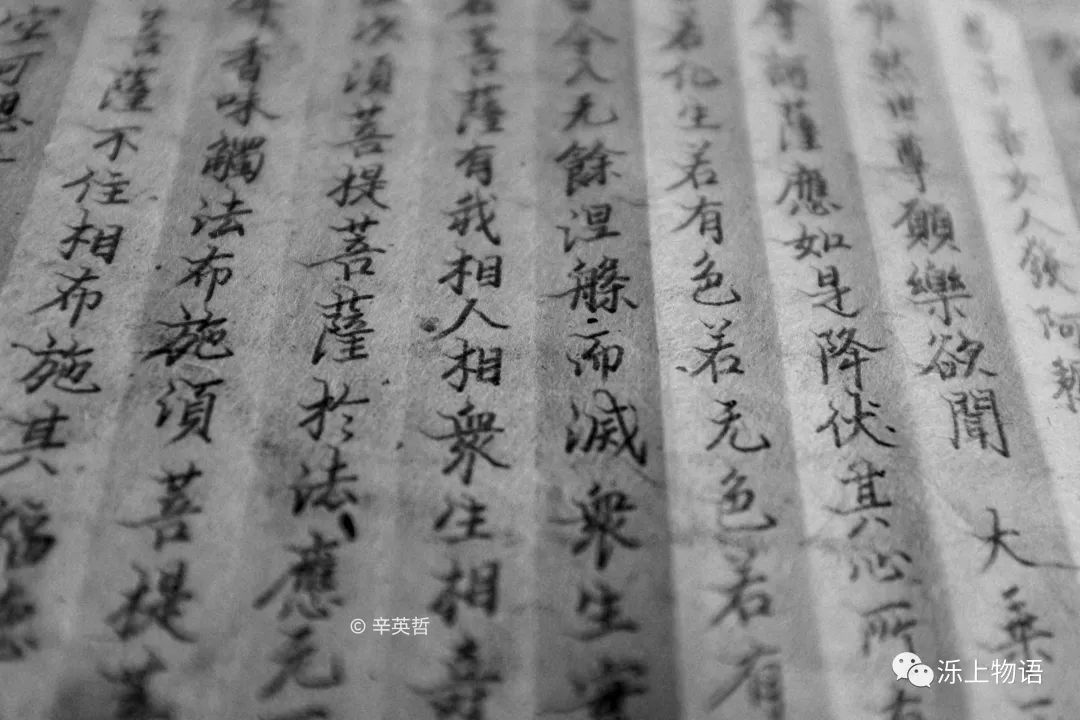 子善女人發阿耨
然世尊願樂欲聞 大乘
訶薩應如是降伏其心所有
若化生若有色若无色若有
令入无餘涅槃而滅衆生實
菩薩有我相人相衆生相壽
次須菩提菩薩於法應无
香味觸法布施須菩提菩
菩薩不住相布施其福德
空可思
© 辛英哲
泺上物语